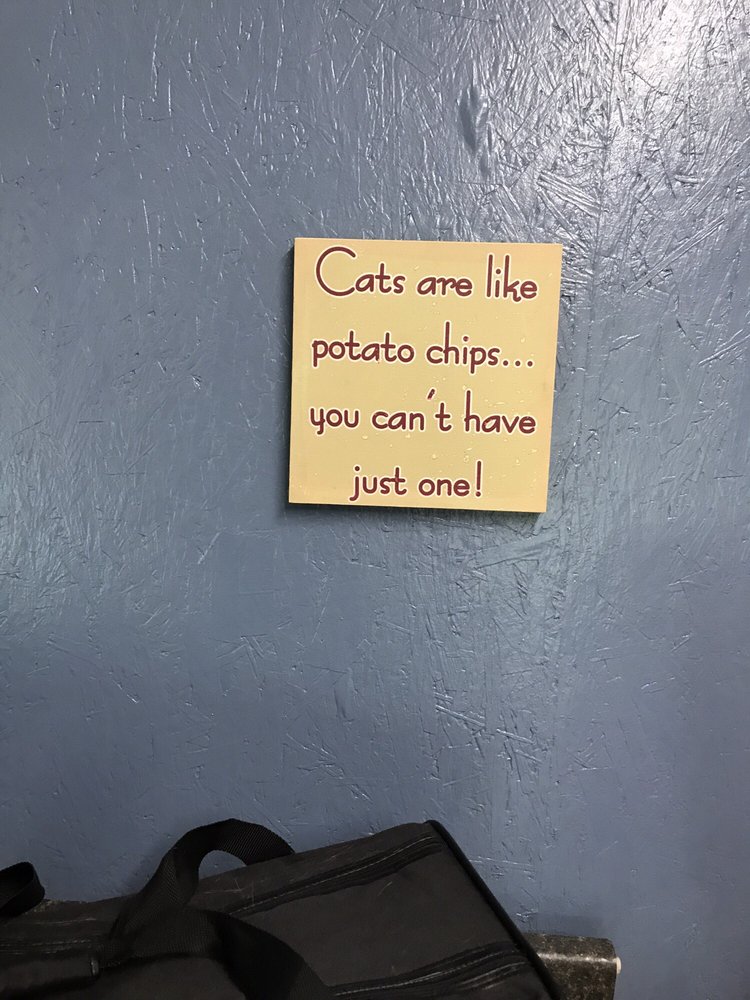 Cats are like
potato chips...
you can't have
just one!